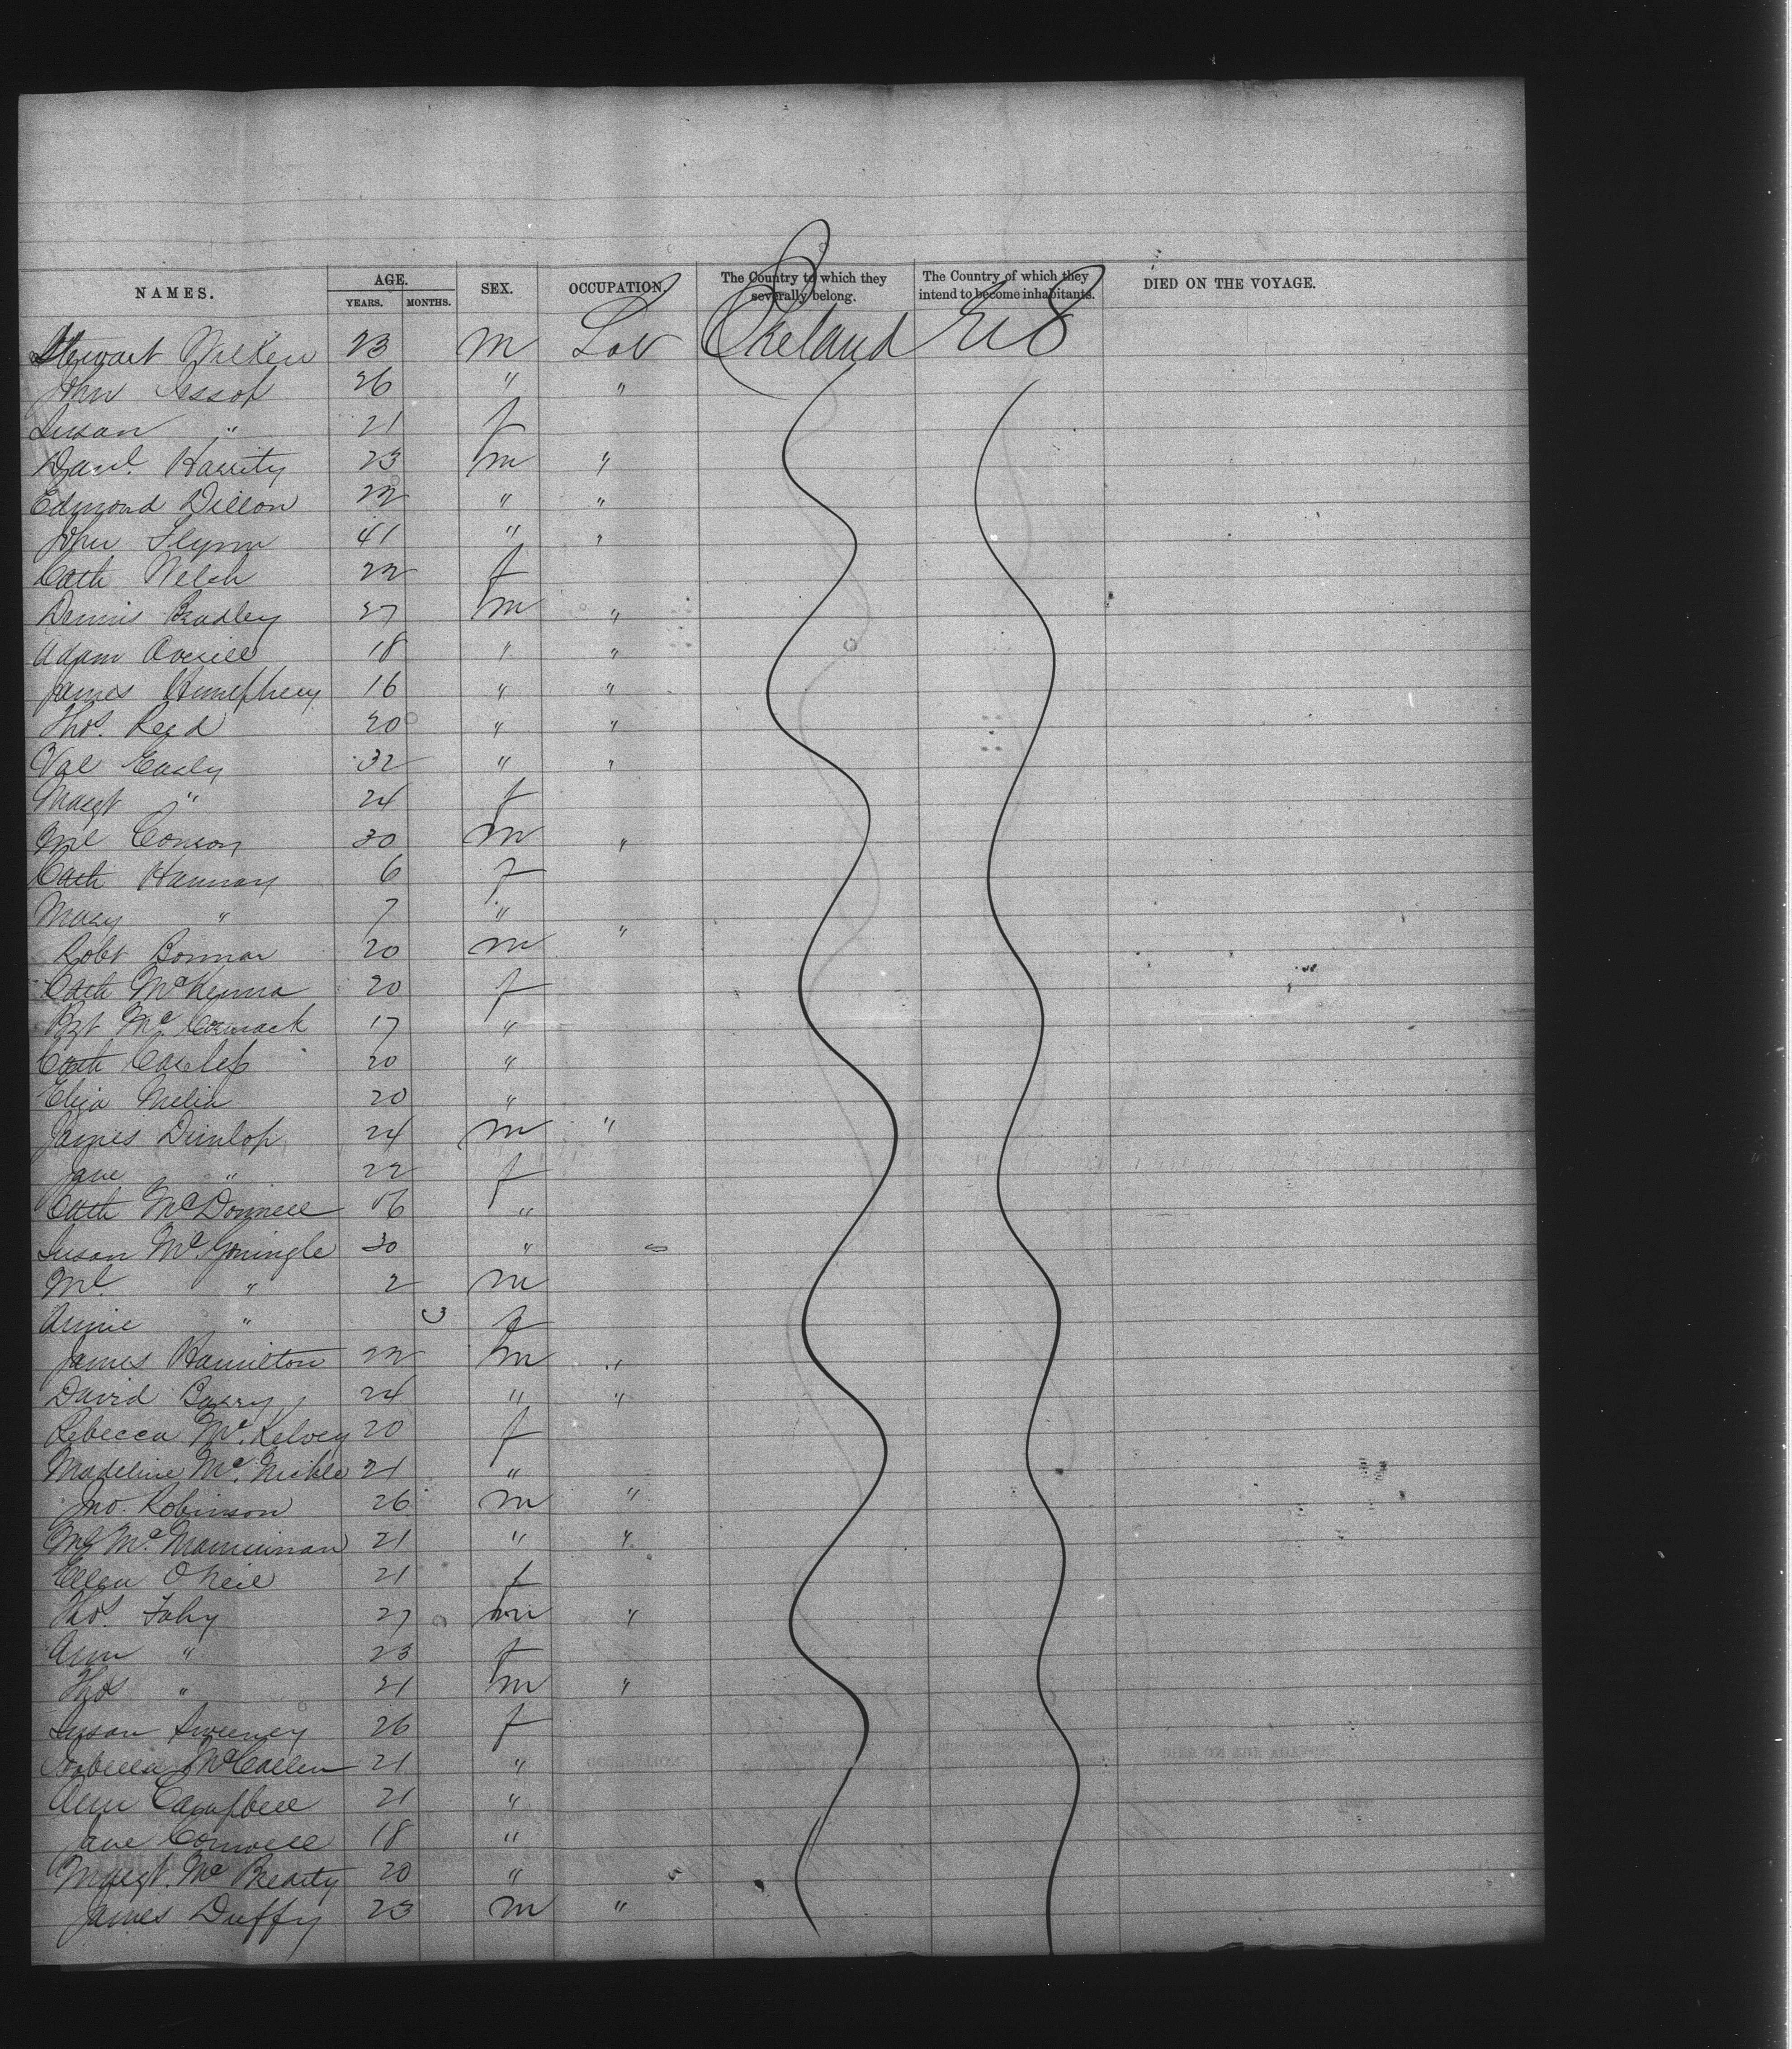 NAMES. AGE. YEARS. MONTHS. SEX. OCCUPATION. The Country to which they severally belong. The Country of which they intend to become inhabitants. DIED ON THE VOYAGE.
Stewart Wilken 23 m Lab Ireland U S
John Jessop 26 " "
Susan " 21 f
Danl. Harrity 23 m "
Edmond Dillon 22 " "
John Flynn 41 " "
Cath Welsh 22 f
Dennis Bradley 27 m "
Adam Overill 18 " "
James Humphery 16 " "
Thos. Reed 20 " "
Val Early 32 " "
Margt " 24 f
Ml 30 m "
Cath Hannay 6 f
Mary " 7 " "
Robt Bonnar 20 m
Cath McKenna 20 f
Bgt McCormack 17 "
Cath 20 "
Eliza Melia 20 "
James Dunlop 24 m "
Jane " 22 f
Cath McDonnell 16 "
Susan Mc.Goningle 30 "
Ml " 2 m
Annie " 3 f
James Hamilton 22 m "
David Barry 24 " "
Rebecca Mc.Kelvey 20 f
Madeline Mc.Nickle 21 "
Jno. Robinson 26 m "
Ml Mc. 21 " "
Ellen O Neil 21 f
Thos. Fahy 27 m "
Ann " 23 f
Thos " 21 m "
Susan Sweeney 26 f
Isabella McCallen 21 "
Ann Campbell 21 "
Jane Conwell 18 "
Margt. Mc Brearty 20 "
James Duffy 23 m "